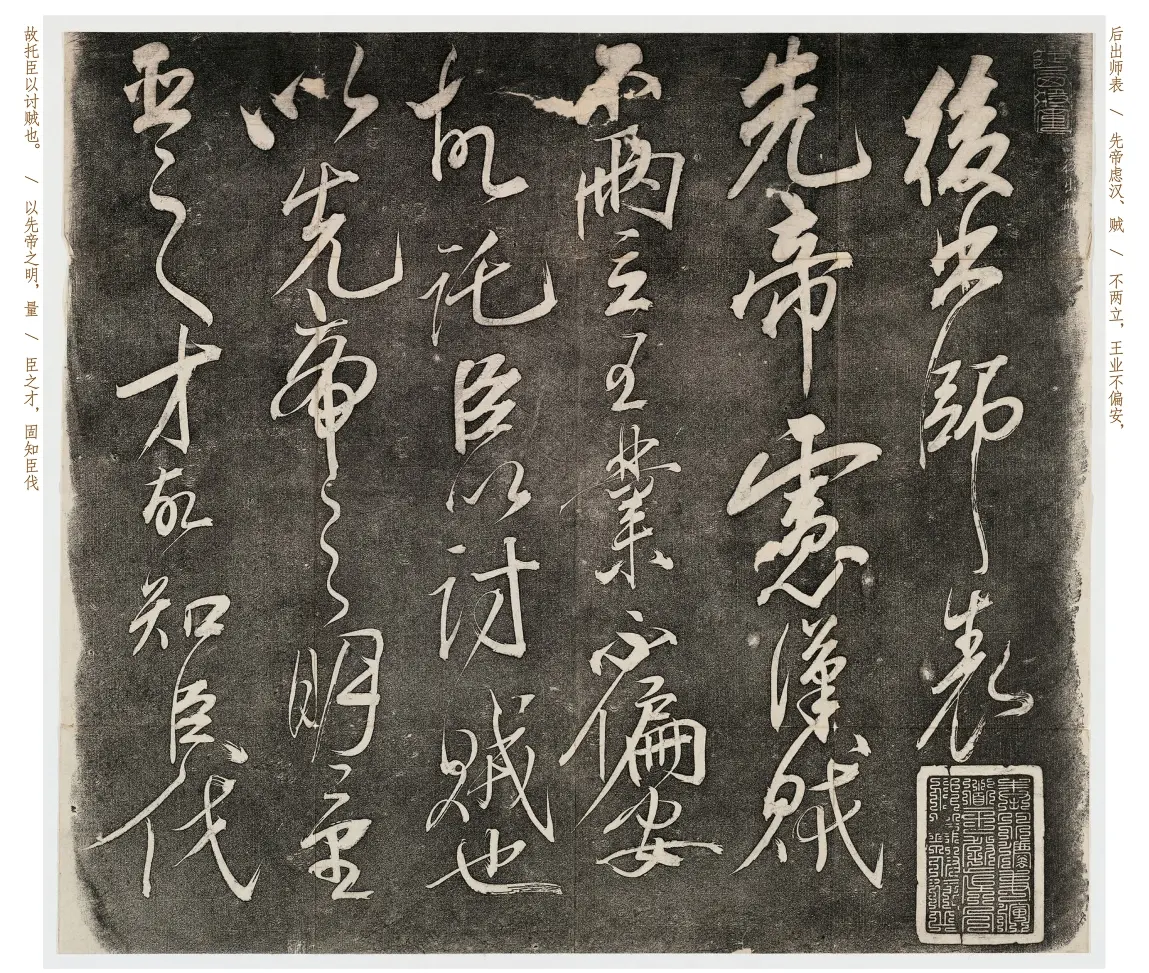 后出师表 / 先帝虑汉、贼 / 不两立，王业不偏安，
後出師表
先帝慮漢賊
不兩立王業不偏安
故託臣以討賊也
以先帝之明量
臣之才故知臣伐
故托臣以讨贼也。 / 以先帝之明，量 / 臣之才，固知臣伐